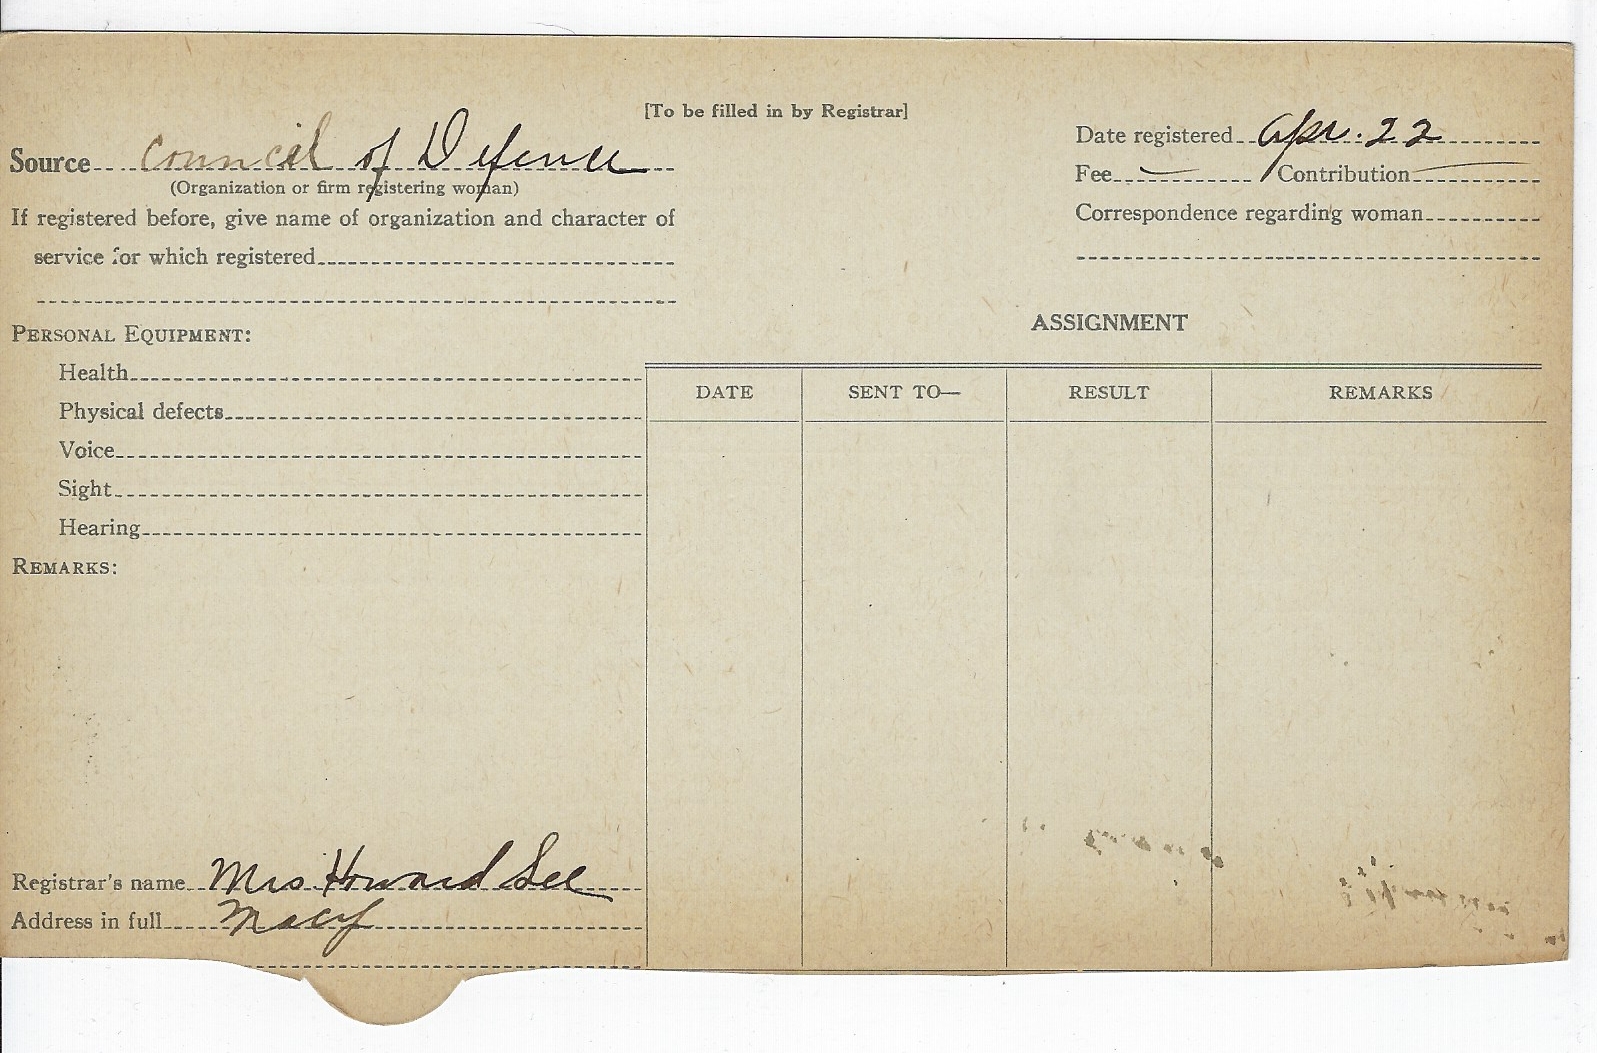 [To be filled in by Registrar]
Source Council of Defence
(Organization or firm registering woman)
If registered before, give name of organization and character of
service for which registered
PERSONAL EQUIPMENT:
Health
Physical defects
Voice
Sight
Hearing
REMARKS:
Registrar's name Mrs Howard Lee
Address in full Macy
Date registered Apr. 22
Fee — Contribution —
Correspondence regarding woman
ASSIGNMENT
DATE SENT TO— RESULT REMARKS